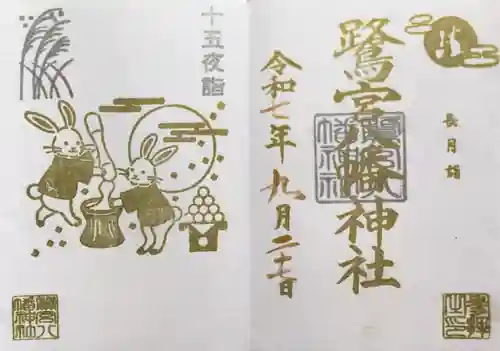 十五夜詣
長月詣
鷺宮八幡神社
令和七年九月二十七日
鷺宮八幡神社